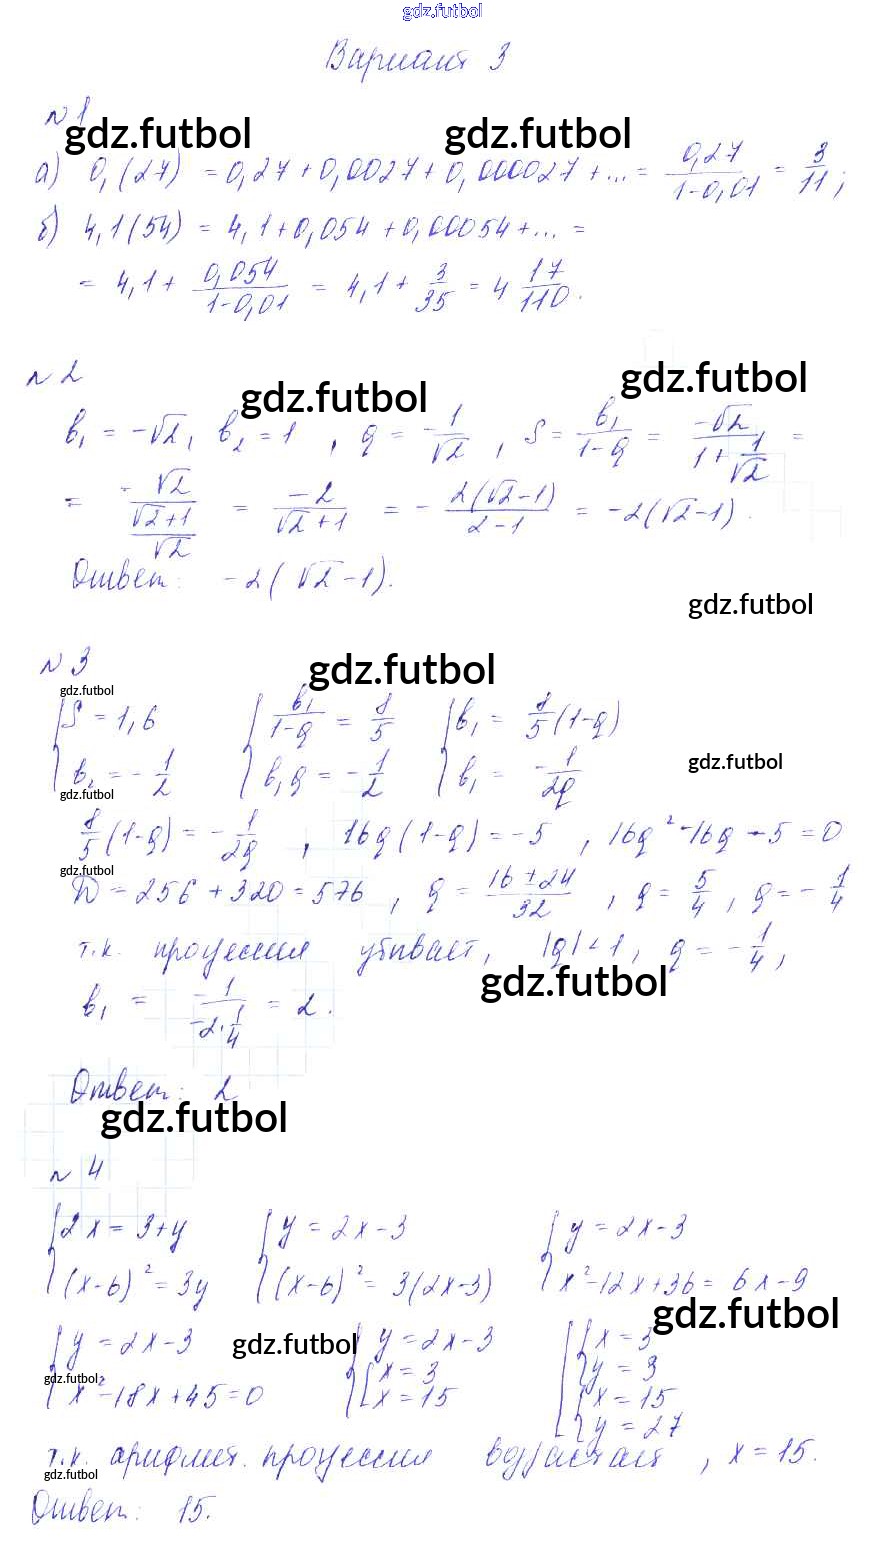 gdz.futbol
Вариант 3
№1
gdz.futbol gdz.futbol
а) 0,(27) = 0,27 + 0,0027 + 0,000027 + ... = 0,27/(1-0,01) = 3/11;
б) 4,1(54) = 4,1 + 0,054 + 0,00054 + ... =
= 4,1 + 0,054/(1-0,01) = 4,1 + 3/35 = 4 17/110.
№2
gdz.futbol gdz.futbol
b₁ = -√2, b₂ = 1, q = -1/√2, S = b₁/(1-q) = -√2/(1+1/√2) =
= -√2/((√2+1)/√2) = -2/(√2+1) = -2(√2-1)/(2-1) = -2(√2-1).
Ответ: -2(√2-1).
gdz.futbol
№3
gdz.futbol
gdz.futbol
{S = 1,6 {b₁/(1-q) = 8/5 {b₁ = 8/5(1-q)
gdz.futbol
{b₂ = -1/2 {b₁q = -1/2 {b₁ = -1/2q
gdz.futbol
8/5(1-q) = -1/2q, 16q(1-q) = -5, 16q²-16q-5=0
gdz.futbol
D = 256 + 320 = 576, q = (16±24)/32, q = 5/4, q = -1/4
т.к. прогрессия убывает, |q|<1, q = -1/4,
gdz.futbol
b₁ = -1/(-2·1/4) = 2.
Ответ: 2
gdz.futbol
№4
{2x = 3+y {y = 2x-3 {y = 2x-3
{(x-6)² = 3y {(x-6)² = 3(2x-3) {x²-12x+36 = 6x-9
gdz.futbol
{y = 2x-3 {y = 2x-3 [{x = 3
gdz.futbol
{y = 3
gdz.futbol
{x²-18x+45=0 [x = 3 x = 15 {x = 15
{y = 27
т.к. арифмет. прогрессия возрастает, x = 15.
gdz.futbol
Ответ: 15.